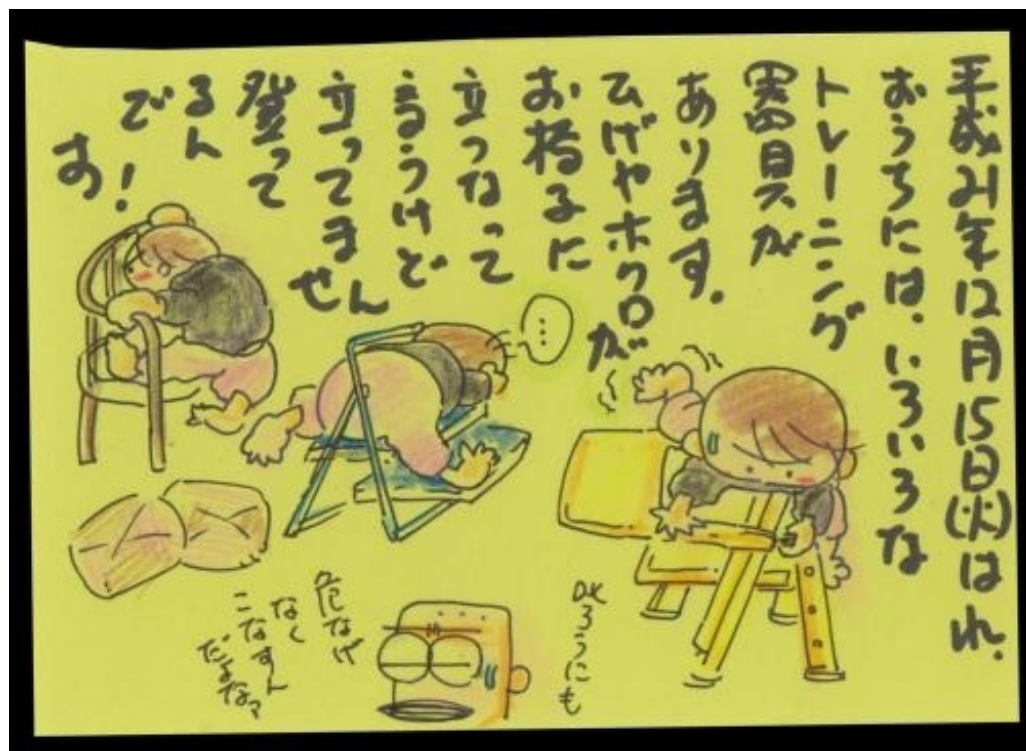 平成21年12月15日(火)はれ.
おうちには、いろいろな
トレーニング
器具が
あります.
ひげやホクロが
お椅子に
立つなって
言うけど
立ってません
登って
るん
で
す!
…
ろうにも
危なげ
なく
こなすん
だよなァ